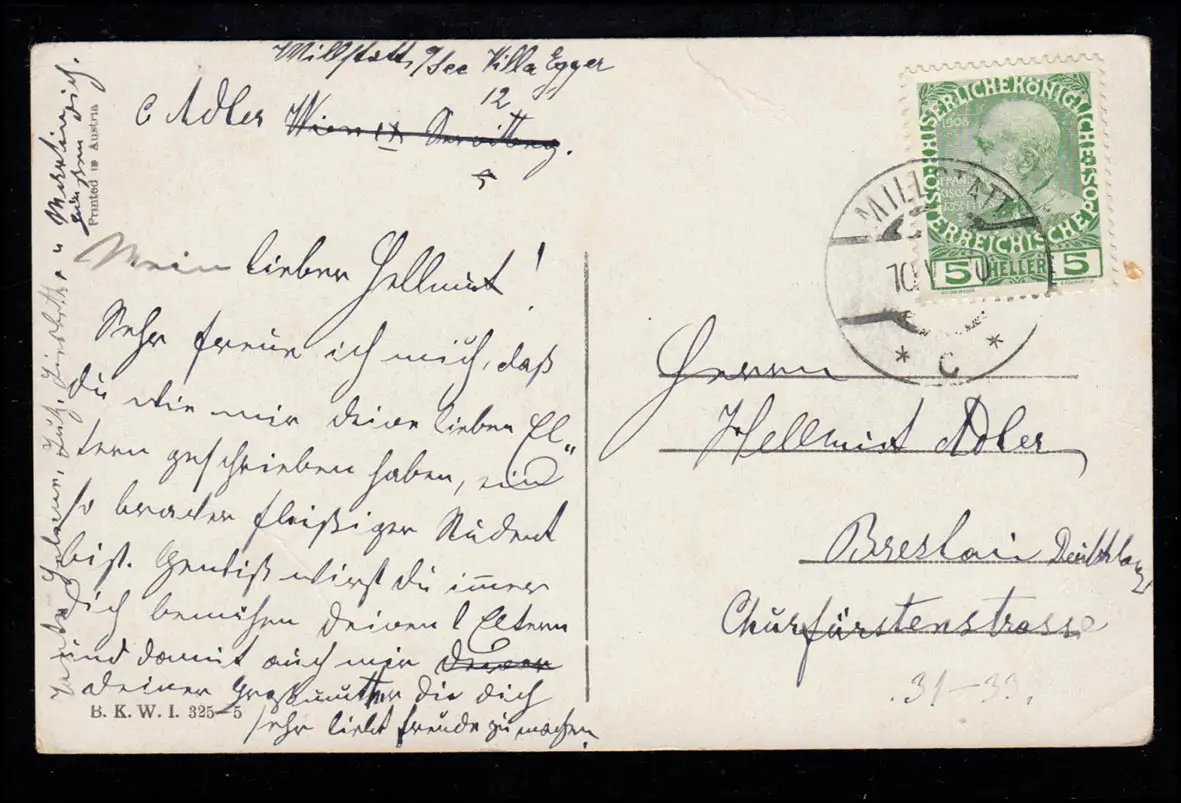 Millstatt a/See Villa Egger
12
C Adler Wien IX Servitteng.
5
Mein lieber Hellmut!
Sehr freue ich mich, daß
Du wie mir deine lieben El„
tern geschrieben haben, ein
so braver fleißiger Student
bist. Gewiß wirst du immer
Dich bemühen deinen l Eltern
und damit auch mir
deiner Großmutter die dich
sehr liebt Freude zu machen.
Printed in Austria
B. K. W. I. 325-5
KAISERLICHE KÖNIGLICHE
ÖSTERREICHISCHE POST
1908
FRANZ
JOSEF
5 HELLER 5
MILLSTATT
10
* C *
Herrn
Hellmut Adler
Breslau Deutschland
Churfürstenstrasse
31-33.